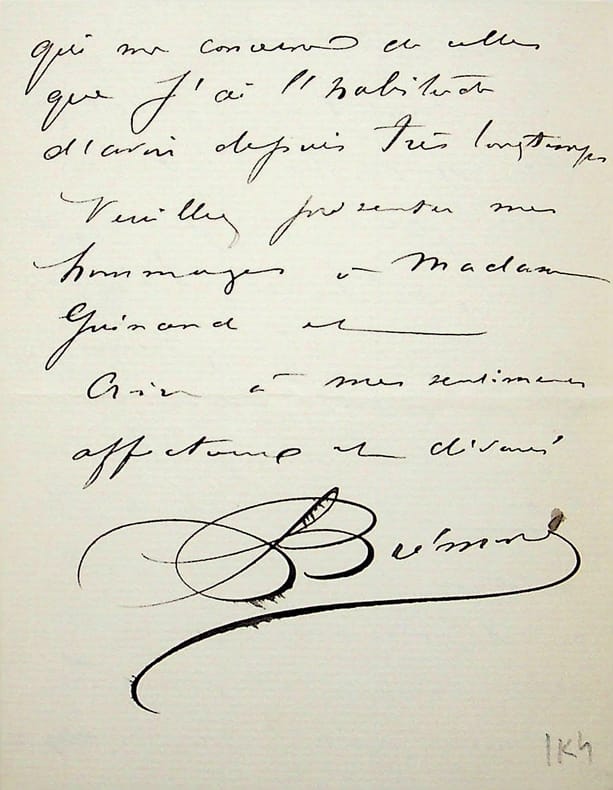 qui me concerne de celles
que j'ai l'habitude
d'avoir depuis très longtemps
Veuillez présenter mes
hommages à Madame
Guinand et
Croire à mes sentiments
affectueux et dévoués
Brémond
1K4